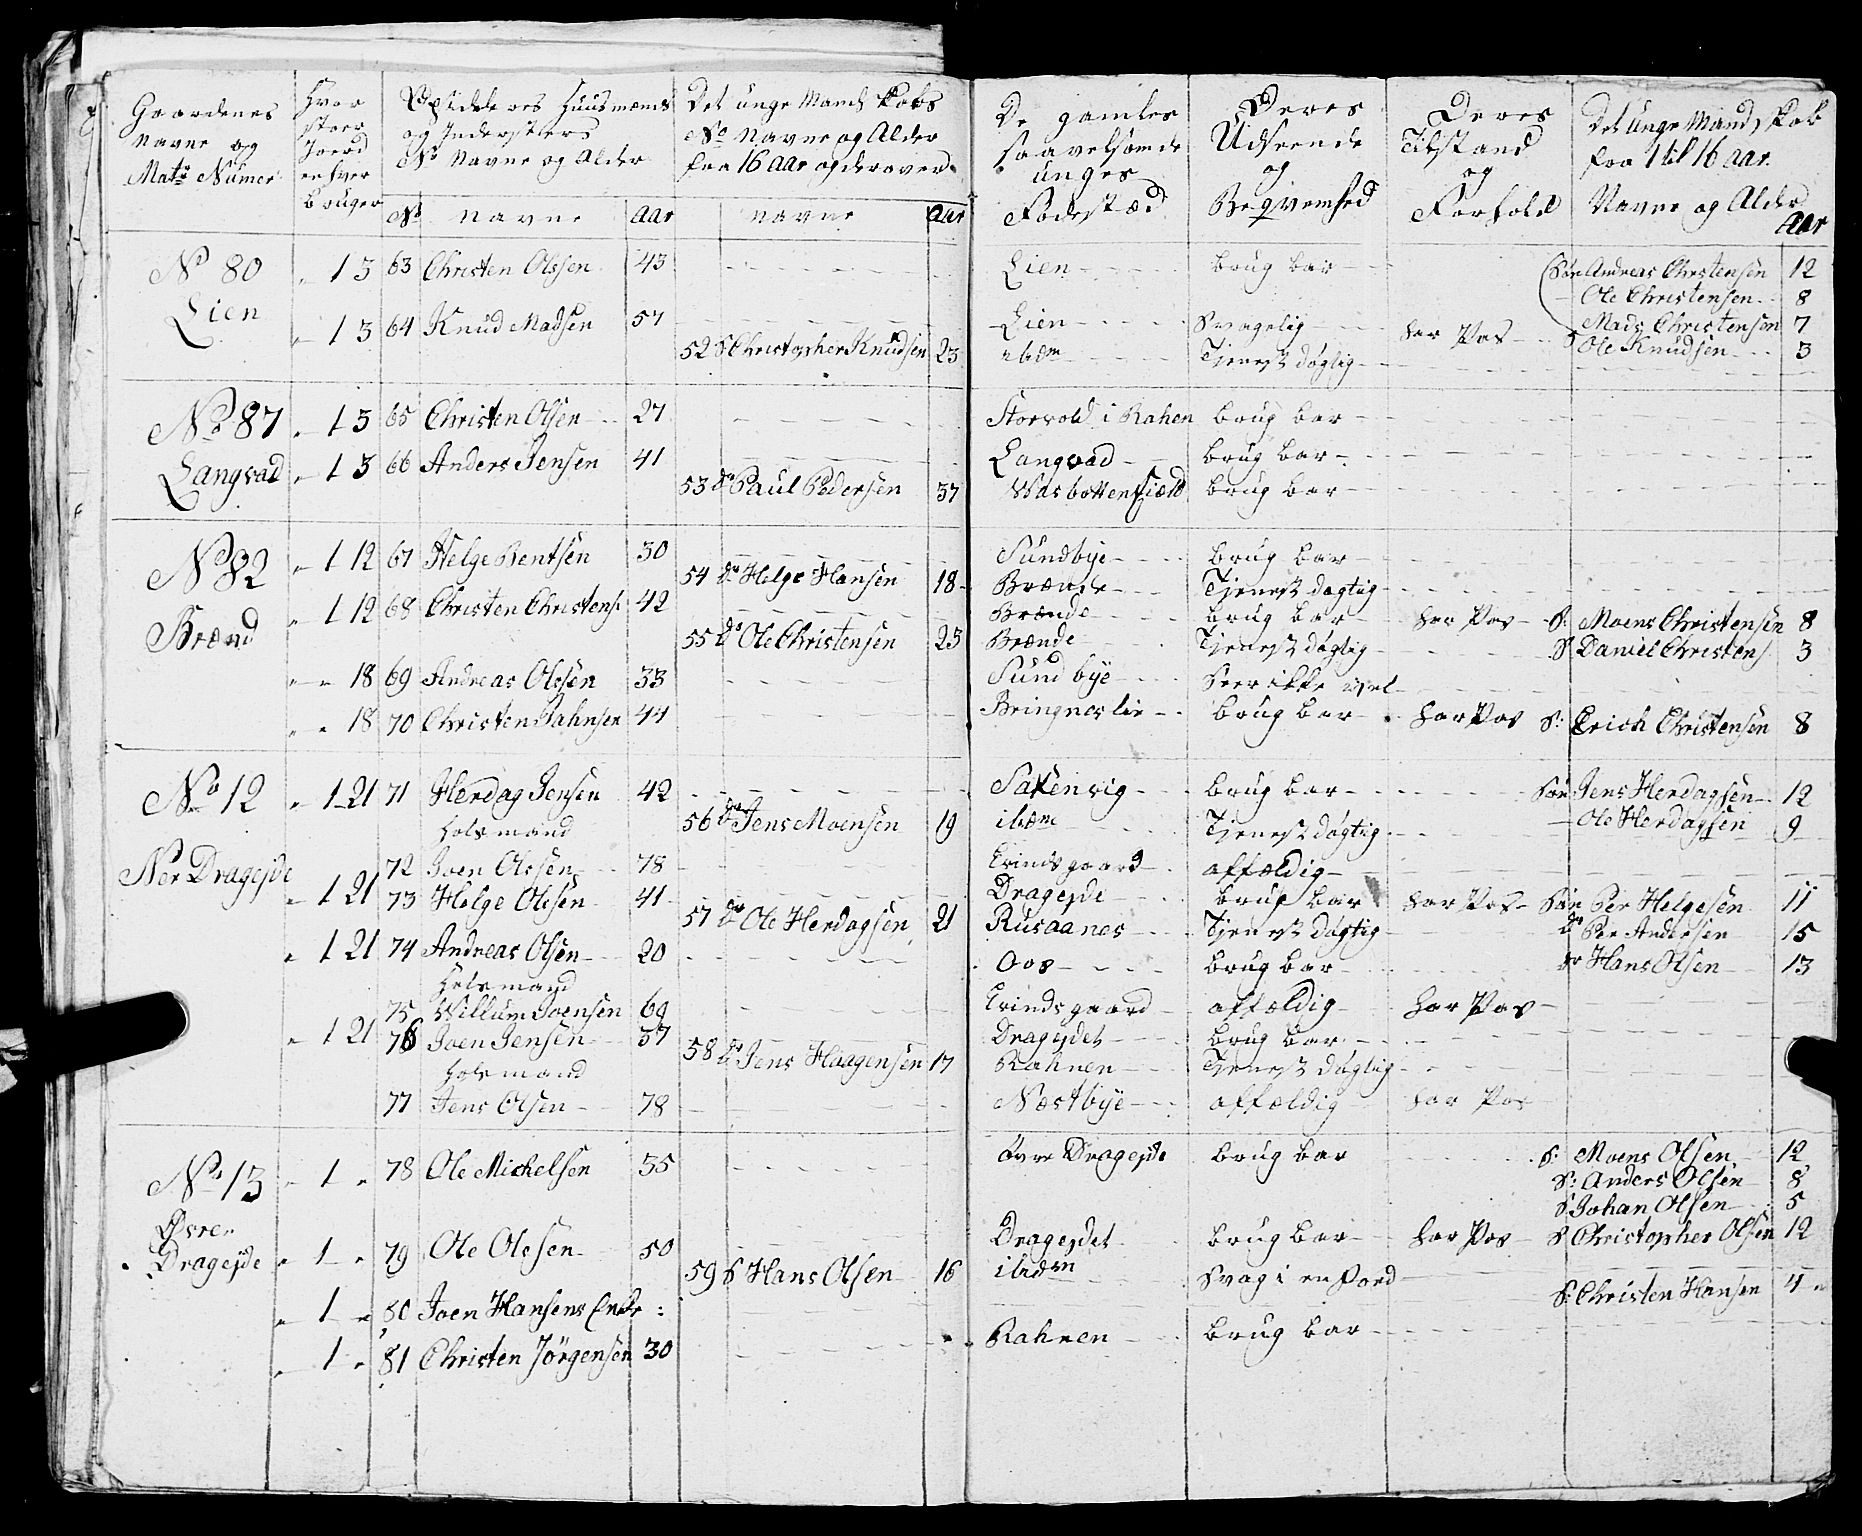 Gaardenes
Navne og
Matr Numer
Hvor
stoer
Joerd
enhver
bruger
Opsiddernes Huusmænds
og Inderster
No Navne og Alder
No Navne Aar
Det unge Mandskabs
No Navne og Alder
fra 16 Aar og derover
Navne Aar
De gamles
saavelsom de
unges
Fødestæd
Deres
Udseende
og
Beqvemhed
Deres
Tilstand
og
Forhold
Det unge Mandskab
fra 1 til 16 Aar.
Navne og Alder
Aar
No 80 " 1 3 63 Christen Olssen 43 Lien brug bar Søn Andreas Christensen 12
Ole Christensen 8
Lien " 1 3 64 Knud Madsen 57 Lien Svagelig har Pas Mads Christensen 7
52 S Christopher Knudsen 23 ibidm Tjenest dögtig S Ole Knudsen 3
No 87 " 1 3 65 Christen Olsen 27 Storvold i Rahen brug bar
Langvad " 1 3 66 Anders Jensen 41 Langvad brug bar
53 do Paul Pedersen 37 brug bar
No 82 " 1 12 67 Helge Bentsen 30 Sundbye brug bar
54 do Helge Hansen 18 Brænde Tjenest dögtig
" 1 12 68 Christen Christens: 42 Brænde brug bar har Pas S: Moens Christensen 8
Brænd 55 do Ole Christensen 23 Brænde Tjenest dögtig S Daniel Christens 3
" " 18 69 Andreas Olssen 33 Sundbye Seer ikke vel
" " 18 70 Christen Jahnsen 44 Bringneslie brug bar har Pas S: Erich Christensen 8
No 12 " 1 21 71 Herdag Jensen 42 Saxenvig brug bar Søn Jens Herdagsen 12
holsmand 56 do Jens Moensen 19 ibidm Tjenest dögtig Ole Herdagsen 9
Ner Dragejde 72 Joen Olssen 78 Evindsgaard affældig
" 1 21 73 Helge Olesen 41 Dragejde brug bar har Pas Søn Per Helgesen 11
57 do Ole Herdagsen 21 Rusaanes Tjenest dögtig do Per Andersen 15
" 1 21 74 Andreas Olsen 20 Oos brug bar do Hans Olsen 13
holsmand
75 Willum Joensen 69 Evindsgaard affældig har Pas
" 1 21 76 Joen Jensen 37 Dragejdet brug bar
holsmand 58 do Jens Haagensen 17 Rahnen Tjenest dögtig
77 Jens Olsen 78 Næstbye affældig har Pas
No 13 " 1 " 78 Ole Michelsen 35 Øvre Dragejde brug bar S: Moens Olsen 12
S: Anders Olsen 8
S Johan Olsen 5
Øvre
Dragejde " 1 " 79 Ole Olesen 50 Dragejdet brug bar har Pas S Christopher Olsen 12
59 S Hans Olsen 16 ibidm Svag i en
" 1 " 80 Joen Hansens Enke: S: Christen Hansen 4
" 1 " 81 Christen Jörgensen 30 Rahnen brug bar